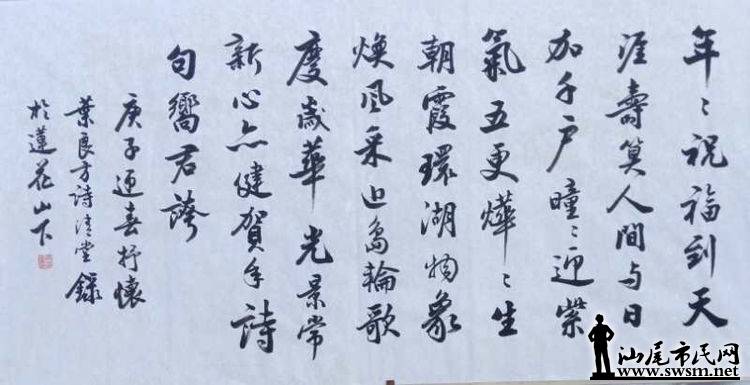 年〻祝福到天
涯壽算人間与日
加千户曈〻迎紫
氣五更燁〻生
朝霞環湖物象
煥風采島輪歌
度歲華光景常
新心亦健賀年詩
句嚮君誇
庚子迎春抒懷
葉良方詩清堂錄
於蓮花山下
汕尾市民网
www.swsm.net